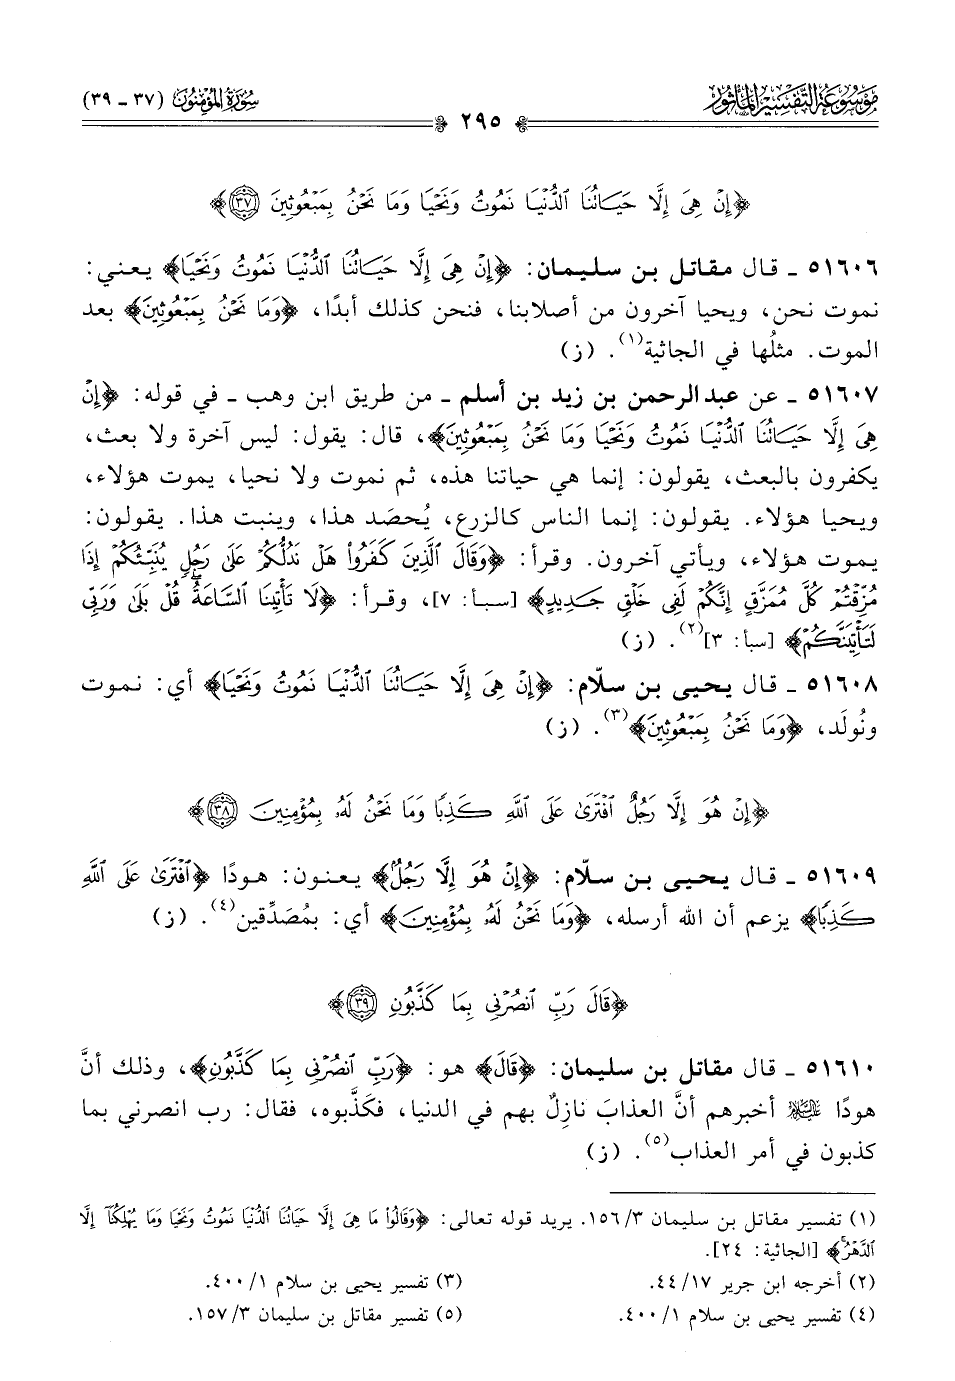 موسوعة التفسير المأثور
سورة المؤمنون (٣٧ - ٣٩)
٢٩٥
﴿إِنْ هِيَ إِلَّا حَيَاتُنَا الدُّنْيَا نَمُوتُ وَنَحْيَا وَمَا نَحْنُ بِمَبْعُوثِينَ ٣٧﴾
٥١٦٠٦ ـ قال مقاتل بن سليمان: ﴿إِنْ هِيَ إِلَّا حَيَاتُنَا الدُّنْيَا نَمُوتُ وَنَحْيَا﴾ يعني:
نموت نحن، ويحيا آخرون من أصلابنا، فنحن كذلك أبدًا، ﴿وَمَا نَحْنُ بِمَبْعُوثِينَ﴾ بعد
الموت. مثلُها في الجاثية(١). (ز)
٥١٦٠٧ ـ عن عبد الرحمن بن زيد بن أسلم ـ من طريق ابن وهب ـ في قوله: ﴿إِنْ
هِيَ إِلَّا حَيَاتُنَا الدُّنْيَا نَمُوتُ وَنَحْيَا وَمَا نَحْنُ بِمَبْعُوثِينَ﴾، قال: يقول: ليس آخرة ولا بعث،
يكفرون بالبعث، يقولون: إنما هي حياتنا هذه، ثم نموت ولا نحيا، يموت هؤلاء،
ويحيا هؤلاء. يقولون: إنما الناس كالزرع، يُحصَد هذا، وينبت هذا. يقولون:
يموت هؤلاء، ويأتي آخرون. وقرأ: ﴿وَقَالَ الَّذِينَ كَفَرُوا هَلْ نَدُلُّكُمْ عَلَى رَجُلٍ يُنَبِّئُكُمْ إِذَا
مُزِّقْتُمْ كُلَّ مُمَزَّقٍ إِنَّكُمْ لَفِي خَلْقٍ جَدِيدٍ﴾ [سبأ: ٧]، وقرأ: ﴿لَا تَأْتِينَا السَّاعَةُ قُلْ بَلَى وَرَبِّي
لَتَأْتِيَنَّكُمْ﴾ [سبأ: ٣](٢). (ز)
٥١٦٠٨ ـ قال يحيى بن سلّام: ﴿إِنْ هِيَ إِلَّا حَيَاتُنَا الدُّنْيَا نَمُوتُ وَنَحْيَا﴾ أي: نموت
ونُولَد، ﴿وَمَا نَحْنُ بِمَبْعُوثِينَ﴾(٣). (ز)
﴿إِنْ هُوَ إِلَّا رَجُلٌ افْتَرَى عَلَى اللَّهِ كَذِبًا وَمَا نَحْنُ لَهُ بِمُؤْمِنِينَ ٣٨﴾
٥١٦٠٩ ـ قال يحيى بن سلّام: ﴿إِنْ هُوَ إِلَّا رَجُلٌ﴾ يعنون: هودًا ﴿افْتَرَى عَلَى اللَّهِ
كَذِبًا﴾ يزعم أن الله أرسله، ﴿وَمَا نَحْنُ لَهُ بِمُؤْمِنِينَ﴾ أي: بمُصَدِّقين(٤). (ز)
﴿قَالَ رَبِّ انْصُرْنِي بِمَا كَذَّبُونِ ٣٩﴾
٥١٦١٠ ـ قال مقاتل بن سليمان: ﴿قَالَ﴾ هو: ﴿رَبِّ انْصُرْنِي بِمَا كَذَّبُونِ﴾، وذلك أنَّ
هودًا عليه السلام أخبرهم أنَّ العذابَ نازِلٌ بهم في الدنيا، فكَذَّبوه، فقال: رب انصرني بما
كذبون في أمر العذاب(٥). (ز)
(١) تفسير مقاتل بن سليمان ٣/ ١٥٦. يريد قوله تعالى: ﴿وَقَالُوا مَا هِيَ إِلَّا حَيَاتُنَا الدُّنْيَا نَمُوتُ وَنَحْيَا وَمَا يُهْلِكُنَا إِلَّا
الدَّهْرُ﴾ [الجاثية: ٢٤].
(٢) أخرجه ابن جرير ١٧/ ٤٤.
(٣) تفسير يحيى بن سلام ١/ ٤٠٠.
(٤) تفسير يحيى بن سلام ١/ ٤٠٠.
(٥) تفسير مقاتل بن سليمان ٣/ ١٥٧.